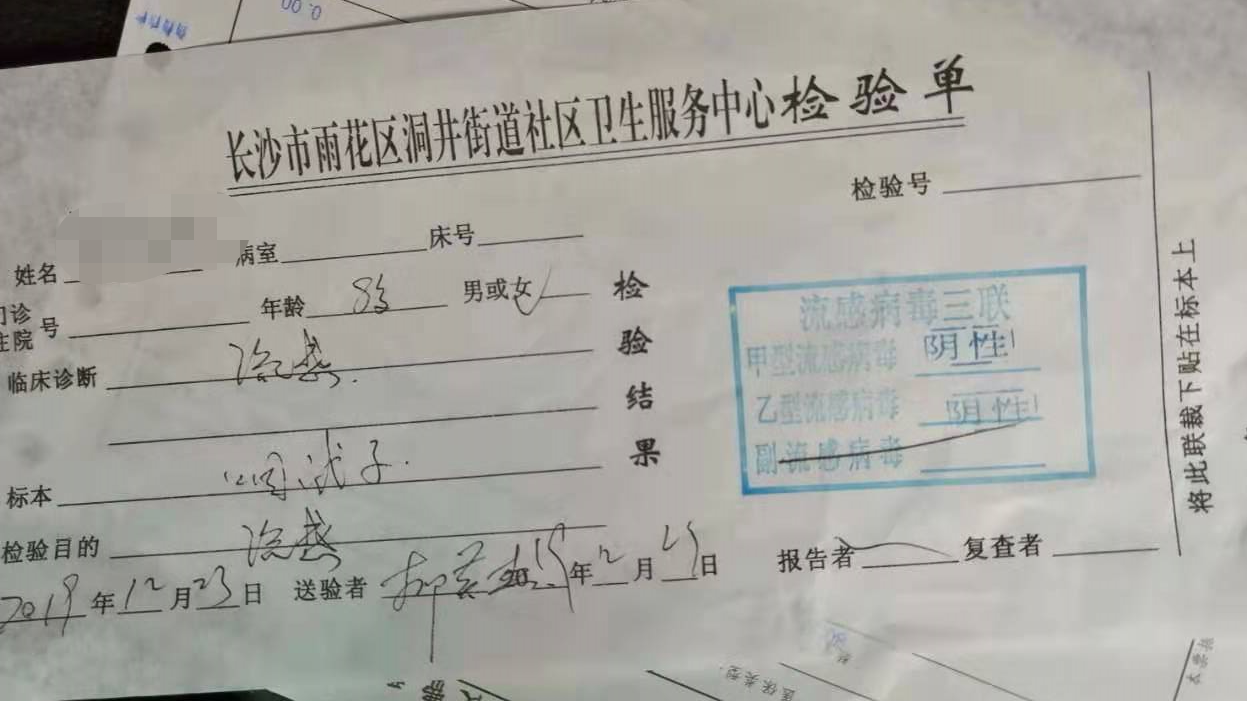 0.00
长沙市雨花区洞井街道社区卫生服务中心检验单
检验号
姓名 病室 床号
门诊
住院 号 年龄 8岁 男或女
临床诊断 流感
标本 咽试子
检验目的 流感
2019年12月23日 送验者 年12月23日 报告者 复查者
检验结果
流感病毒三联
甲型流感病毒 阴性
乙型流感病毒 阴性
副流感病毒
将此联裁下贴在标本上
医保类型: